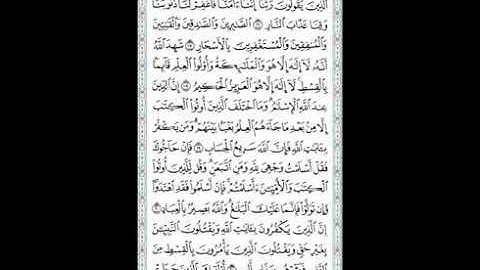 ٱلَّذِينَ يَقُولُونَ رَبَّنَآ إِنَّنَآ ءَامَنَّا فَٱغْفِرْ لَنَا ذُنُوبَنَا
وَقِنَا عَذَابَ ٱلنَّارِ ١٦ ٱلصَّٰبِرِينَ وَٱلصَّٰدِقِينَ وَٱلْقَٰنِتِينَ
وَٱلْمُنفِقِينَ وَٱلْمُسْتَغْفِرِينَ بِٱلْأَسْحَارِ ١٧ شَهِدَ ٱللَّهُ
أَنَّهُۥ لَآ إِلَٰهَ إِلَّا هُوَ وَٱلْمَلَٰٓئِكَةُ وَأُو۟لُوا۟ ٱلْعِلْمِ قَآئِمًۢا
بِٱلْقِسْطِ لَآ إِلَٰهَ إِلَّا هُوَ ٱلْعَزِيزُ ٱلْحَكِيمُ ١٨ إِنَّ ٱلدِّينَ
عِندَ ٱللَّهِ ٱلْإِسْلَٰمُ وَمَا ٱخْتَلَفَ ٱلَّذِينَ أُوتُوا۟ ٱلْكِتَٰبَ
إِلَّا مِنۢ بَعْدِ مَا جَآءَهُمُ ٱلْعِلْمُ بَغْيًۢا بَيْنَهُمْ وَمَن يَكْفُرْ
بِـَٔايَٰتِ ٱللَّهِ فَإِنَّ ٱللَّهَ سَرِيعُ ٱلْحِسَابِ ١٩ فَإِنْ حَآجُّوكَ
فَقُلْ أَسْلَمْتُ وَجْهِىَ لِلَّهِ وَمَنِ ٱتَّبَعَنِ وَقُل لِّلَّذِينَ أُوتُوا۟
ٱلْكِتَٰبَ وَٱلْأُمِّيِّـۧنَ ءَأَسْلَمْتُمْ فَإِنْ أَسْلَمُوا۟ فَقَدِ ٱهْتَدَوا۟
وَّإِن تَوَلَّوْا۟ فَإِنَّمَا عَلَيْكَ ٱلْبَلَٰغُ وَٱللَّهُ بَصِيرٌۢ بِٱلْعِبَادِ ٢٠
إِنَّ ٱلَّذِينَ يَكْفُرُونَ بِـَٔايَٰتِ ٱللَّهِ وَيَقْتُلُونَ ٱلنَّبِيِّـۧنَ
بِغَيْرِ حَقٍّ وَيَقْتُلُونَ ٱلَّذِينَ يَأْمُرُونَ بِٱلْقِسْطِ مِنَ